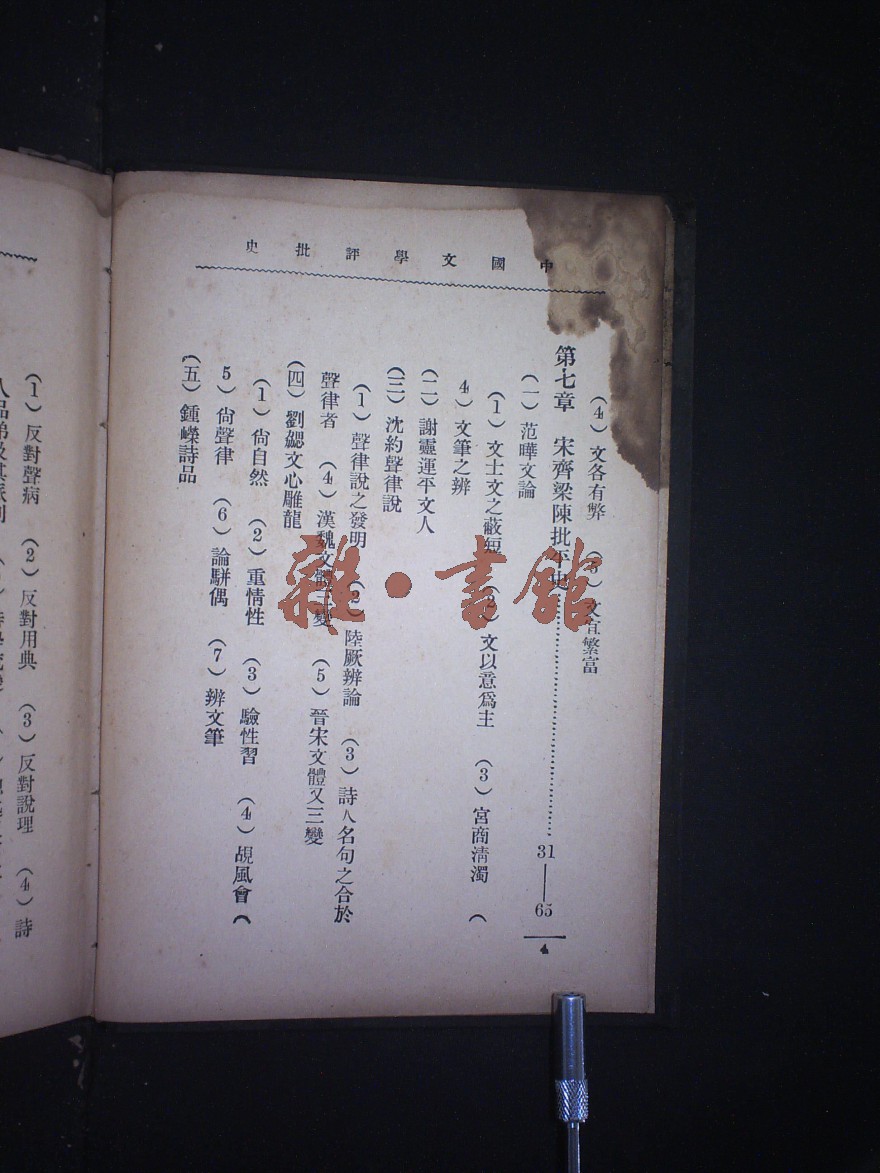 中國文學評批史
(4) 文各有弊 (5) 文宜繁富
第七章 宋齊梁陳批平史
31——65
4
(一) 范曄文論
(1) 文士文之蔽短 (2) 文以意爲主 (3) 宮商淸濁 (
4) 文筆之辨
(二) 謝靈運平文人
(三) 沈約聲律說
(1) 聲律說之發明 (2) 陸厥辨論 (3) 詩人名句之合於
聲律者 (4) 漢魏文體 變 (5) 晉宋文體又三變
(四) 劉勰文心雕龍
(1) 尙自然 (2) 重情性 (3) 驗性習 (4) 覘風會 (
5) 尙聲律 (6) 論駢偶 (7) 辨文筆
(五) 鍾嶸詩品
(1) 反對聲病 (2) 反對用典 (3) 反對說理 (4) 詩
雜·書館